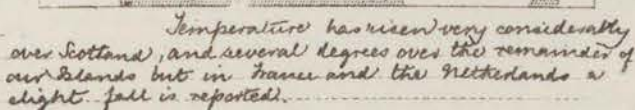 Temperature has risen very considerably
over Scotland, and several degrees over the remainder of
our Islands but in France and the Netherlands a
slight fall is reported.